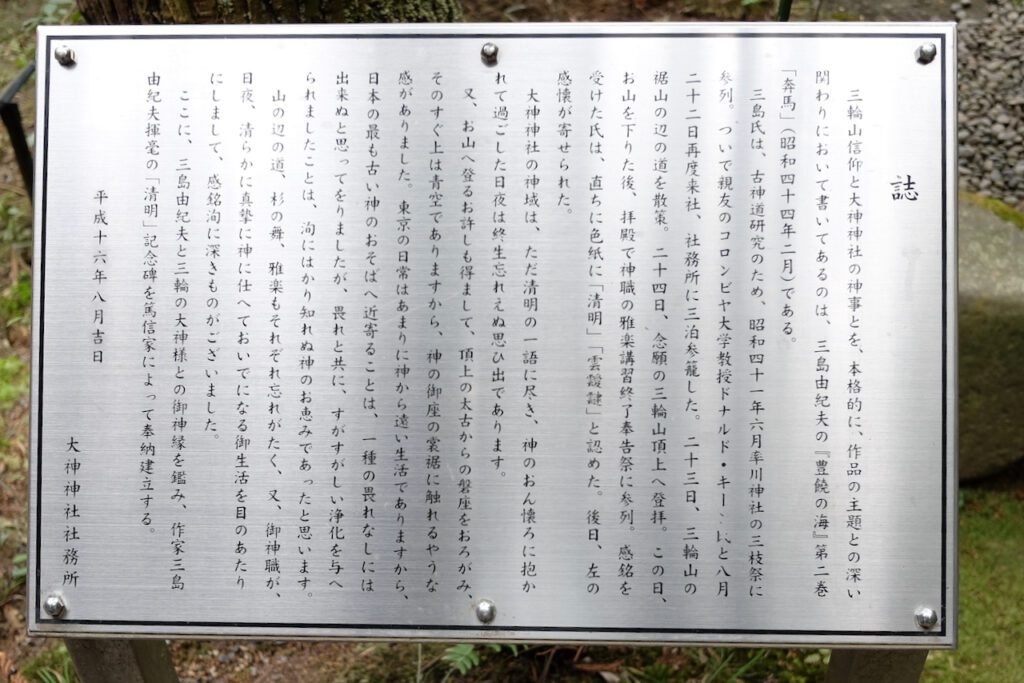 誌
三輪山信仰と大神神社の神事とを、本格的に、作品の主題との深い
関わりにおいて書いてあるのは、三島由紀夫の『豊饒の海』第二巻
「奔馬」(昭和四十四年二月)である。
三島氏は、古神道研究のため、昭和四十一年六月率川神社の三枝祭に
参列。ついで親友のコロンビヤ大学教授ドナルド・キーン氏と八月
二十二日再度来社、社務所に三泊参籠した。二十三日、三輪山の
裾山の辺の道を散策。二十四日、念願の三輪山頂上へ登拝。この日、
お山を下りた後、拝殿で神職の雅楽講習終了奉告祭に参列。感銘を
受けた氏は、直ちに色紙に「清明」「雲靉靆」と認めた。後日、左の
感懐が寄せられた。
大神神社の神域は、ただ清明の一語に尽き、神のおん懐ろに抱か
れて過ごした日夜は終生忘れえぬ思ひ出であります。
又、お山へ登るお許しも得まして、頂上の太古からの磐座をおろがみ、
そのすぐ上は青空でありますから、神の御座の裳裾に触れるやうな
感がありました。東京の日常はあまりに神から遠い生活でありますから、
日本の最も古い神のおそばへ近寄ることは、一種の畏れなしには
出来ぬと思ってをりましたが、畏れと共に、すがすがしい浄化を与へ
られましたことは、洵にはかり知れぬ神のお恵みであったと思います。
山の辺の道、杉の舞、雅楽もそれぞれ忘れがたく、又、御神職が、
日夜、清らかに真摯に神に仕へておいでになる御生活を目のあたり
にしまして、感銘洵に深きものがございました。
ここに、三島由紀夫と三輪の大神様との御神縁を鑑み、作家三島
由紀夫揮毫の「清明」記念碑を篤信家によって奉納建立する。
平成十六年八月吉日
大神神社社務所